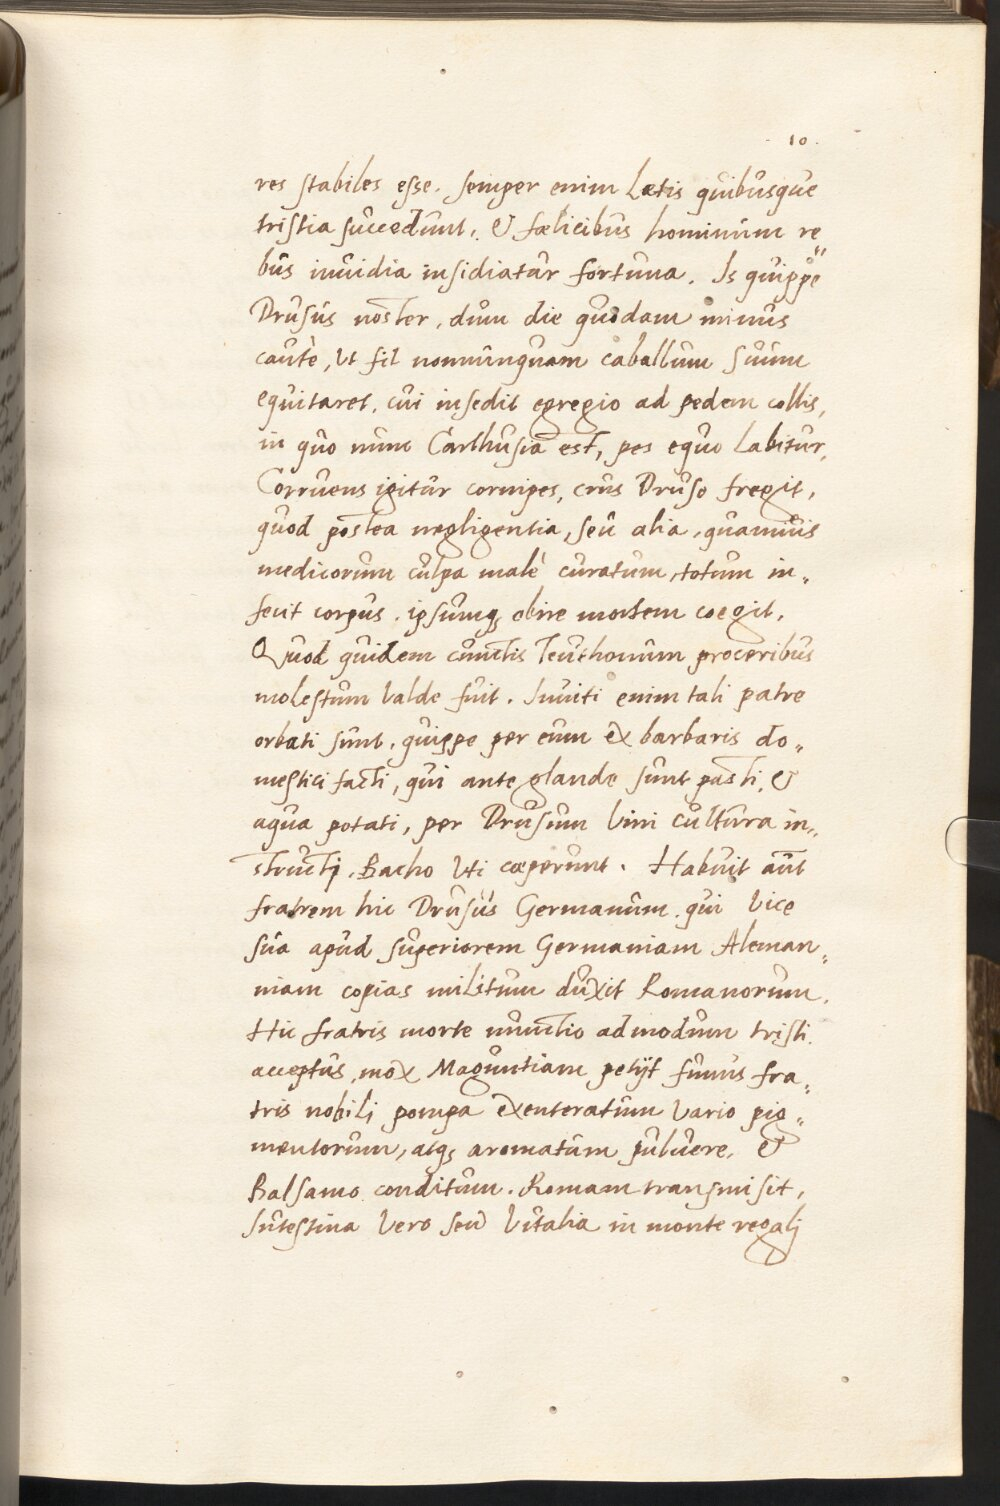 10.
res stabiles esse. semper enim Lætis quibusque
tristia succedunt, & fælicibus hominum re„
bus inuidia insidiatur fortuna. Is quippe
Drusus noster, dum die quodam minus
cautè, ut fit nonnunquam caballum suum
equitaret, cui insedit egregio ad pedem collis,
in quo nunc Carthusia est, pes equo Labitur,
Corruens igitur cornipes, crus Druso fregit,
quod postea negligentia, seu alia, quamuis
medicorum culpa malè curatum, totum in„
fecit corpus, ipsumq; obire mortem coegit.
Quod quidem cunctis Teuthonum proceribus
molestum valde fuit. Inuiti enim tali patre
orbati sunt, quippe per eum ex barbaris do„
mestici facti, qui ante glande sunt pasti, &
aqua potati, per Drusum vini cultura in„
structi, Bacho uti cæperunt. Habuit aūt
fratrem hic Drusus Germanum, qui vice
sua apud superiorem Germaniam Aleman„
niam copias militum duxit Romanorum.
Hic fratris morte nunctio admodum tristi
acceptus, mox Maguntiam petijt funus fra„
tris nobili pompa exenteratum vario pig„
mentorum, atq; aromatum puluere, &
Balsamo conditum. Romam transmisit,
Intestina vero seu vitalia in monte regali